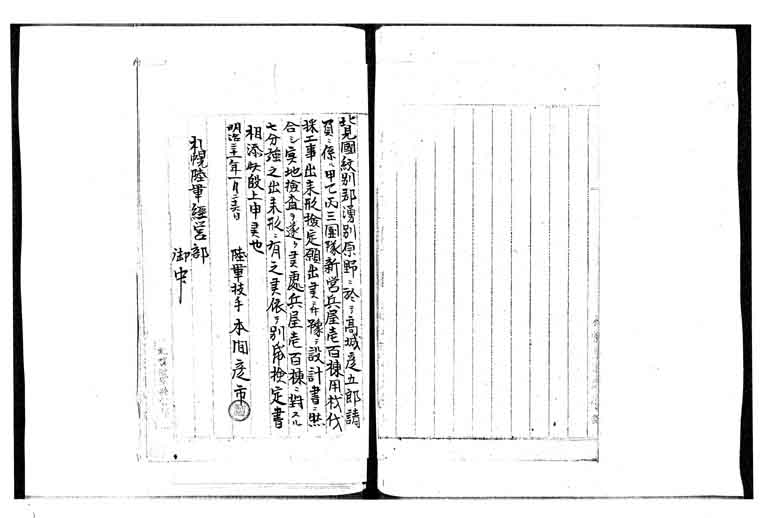 北見國紋別郡湧別原野ニ於テ高城彦五郎請
負ニ係ル甲乙丙三團隊新営兵屋壱百棟用材伐
採工事出来形検定願出候ニ付豫テ設計書ニ照
合シ実地檢査ヲ遂ケ候處兵屋壱百棟ニ對スル
七分強之出来形ニ有之候依テ別紙檢定書
相添此段上申候也
明治三十一年一月二十六日
陸軍技手 本間彦市
札幌陸軍經営部
御中